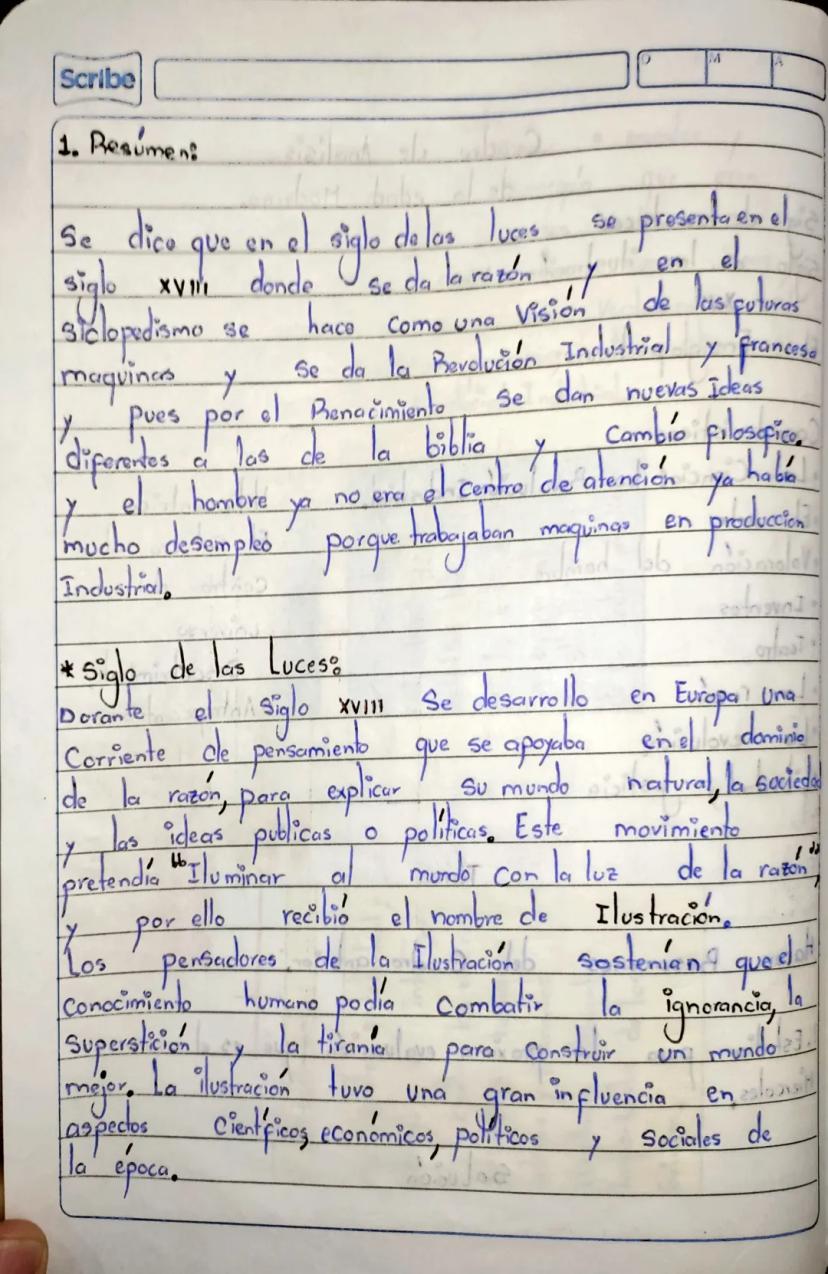 Scribe
D M A
1. Resúmen:
Se dice que en el siglo de las luces se presenta en el
siglo XVIII donde se da la razón y en el
siclopedismo se hace como una visión de las futuras
maquinas y se da la Revolución Industrial y francesa
y pues por el Renacimiento se dan nuevas Ideas
diferentes a las de la biblia y Cambió filosofico.
y el hombre ya no era el centro de atención ya había
mucho desempleó porque trabajaban maquinas en produccion
Industrial.
* Siglo de las Luces:
Dorante el Siglo XVIII Se desarrollo en Europa una
Corriente de pensamiento que se apoyaba en el dominio
de la razón, para explicar su mundo natural, la sociedad
y las ideas publicas o políticas. Este movimiento
pretendía "Iluminar al mundo con la luz de la razón",
y por ello recibió el nombre de Ilustración.
Los pensadores de la Ilustración sostenían que el
Conocimiento humano podía Combatir la ignorancia, la
Superstición y la tiranía para construir un mundo
mejor. La ilustración tuvo una gran influencia en
aspectos Científicos, económicos, políticos y sociales de
la época.